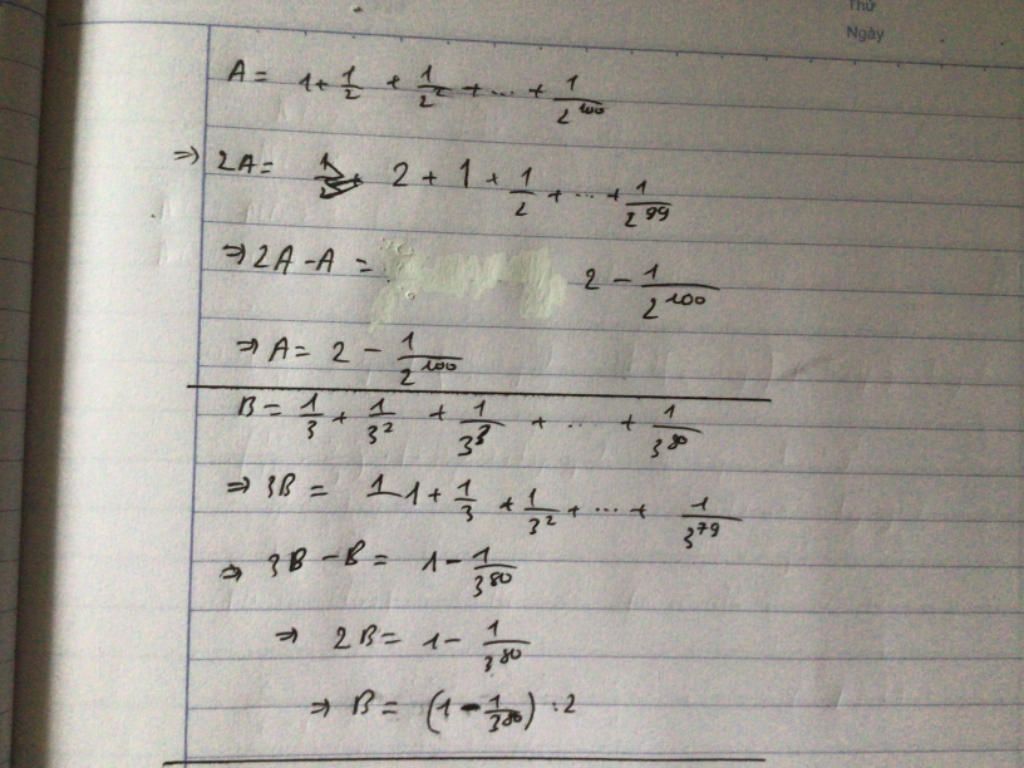 Thứ
Ngày
A = 1 + 1/2 + 1/2² + ... + 1/2¹⁰⁰
⇒ 2A = 2 + 1 + 1/2 + ... + 1/2⁹⁹
⇒ 2A - A = 2 - 1/2¹⁰⁰
⇒ A = 2 - 1/2¹⁰⁰
B = 1/3 + 1/3² + 1/3³ + ... + 1/3⁸⁰
⇒ 3B = 1 + 1/3 + 1/3² + ... + 1/3⁷⁹
⇒ 3B - B = 1 - 1/3⁸⁰
⇒ 2B = 1 - 1/3⁸⁰
⇒ B = (1 - 1/3⁸⁰) : 2